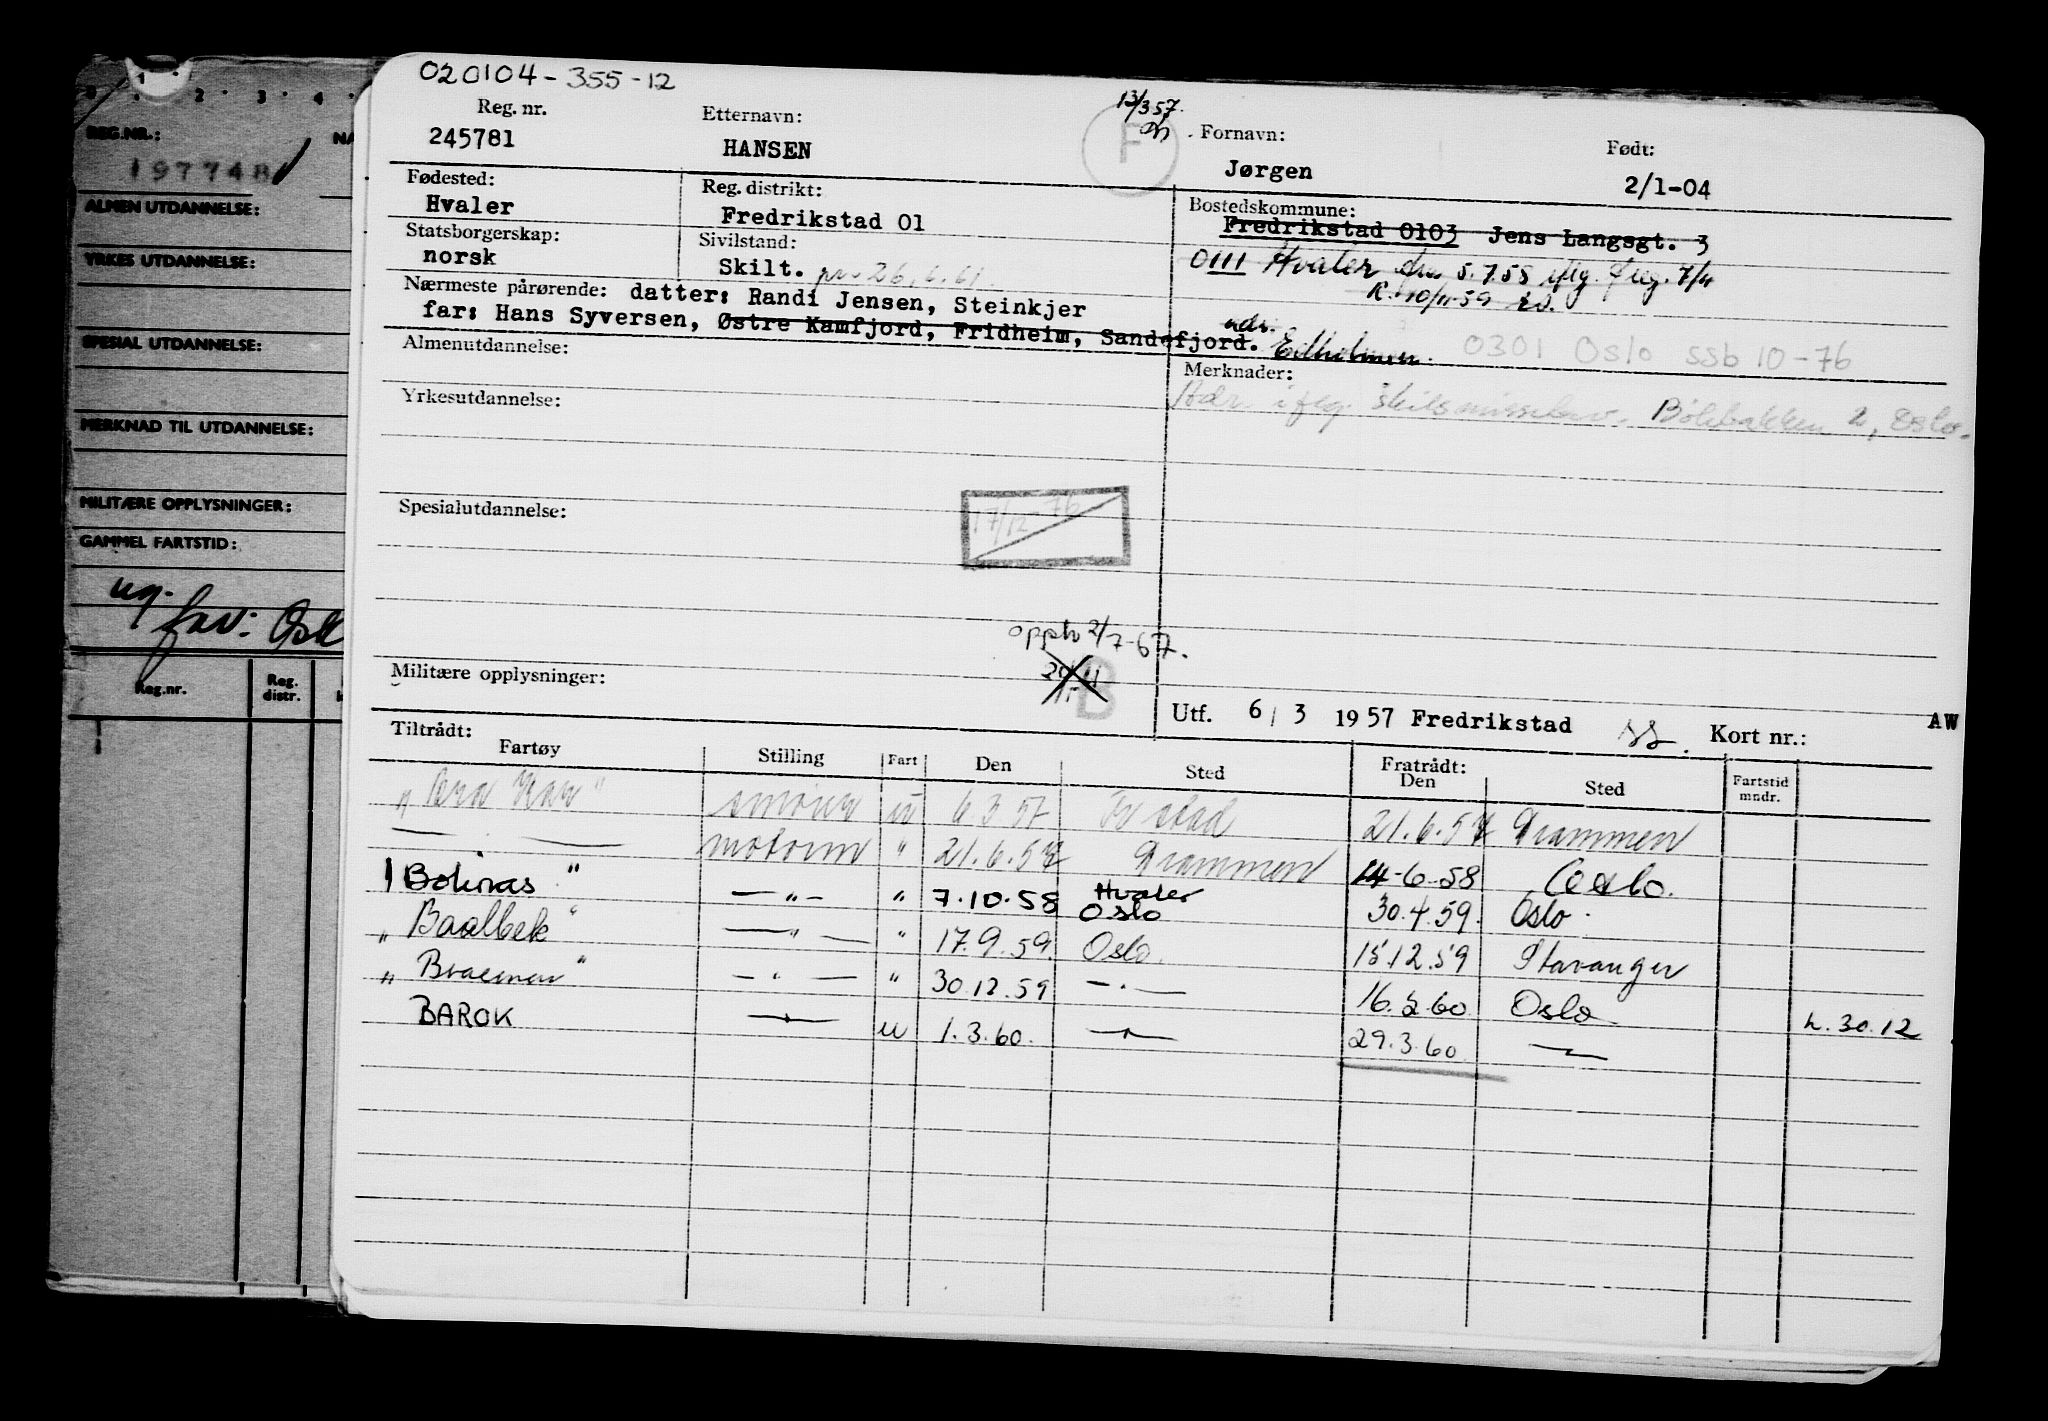 020104-355-12
Reg. nr. Etternavn: 13/3 57. Fornavn: Født:
245781 HANSEN F Jørgen 2/1-04
Fødested: Reg. distrikt: Bostedskommune:
Hvaler Fredrikstad 01 Fredrikstad 0103 Jens Langsgt. 3
Statsborgerskap: Sivilstand: 0111 Hvaler 5.7.55 7/4
norsk Skilt. 26.6.61. R. 10/11-59
Nærmeste pårørende: datter: Randi Jensen, Steinkjer
far: Hans Syversen, Østre Kamfjord, Fridheim, Sandefjord. adr.
0301 Oslo ssb 10-76
Almenutdannelse: Merknader:
Adr. Oslo.
Yrkesutdannelse:
Spesialutdannelse: 17/12-76
2/7-67.
Militære opplysninger: B
Utf. 6/3 1957 Fredrikstad Kort nr.: AW
Tiltrådt: Fratrådt:
Fartøy Stilling Fart Den Sted Den Sted Fartstid mndr.
"Bra Kar" smører u 6.3.57 Fr stad 21.6.57 Drammen
— " — motorm " 21.6.57 Drammen 14-6-58 Oslo.
Bolinas " — " — " 7.10.58 Hvaler Oslo 30.4.59. Oslo.
" Baalbek " — " — " 17.9.59. Oslo. 15.12.59 Stavanger
" Braemar " — " — " 30.12.59 — " — 16.2.60 Oslo h.30.12
BAROK — " — u 1.3.60. — " — 29.3.60 — " —
REG.NR.:
197748
ALMEN UTDANNELSE:
YRKES UTDANNELSE:
SPESIAL UTDANNELSE:
MERKNAD TIL UTDANNELSE:
MILITÆRE OPPLYSNINGER:
GAMMEL FARTSTID:
Reg.nr. Reg. distr.